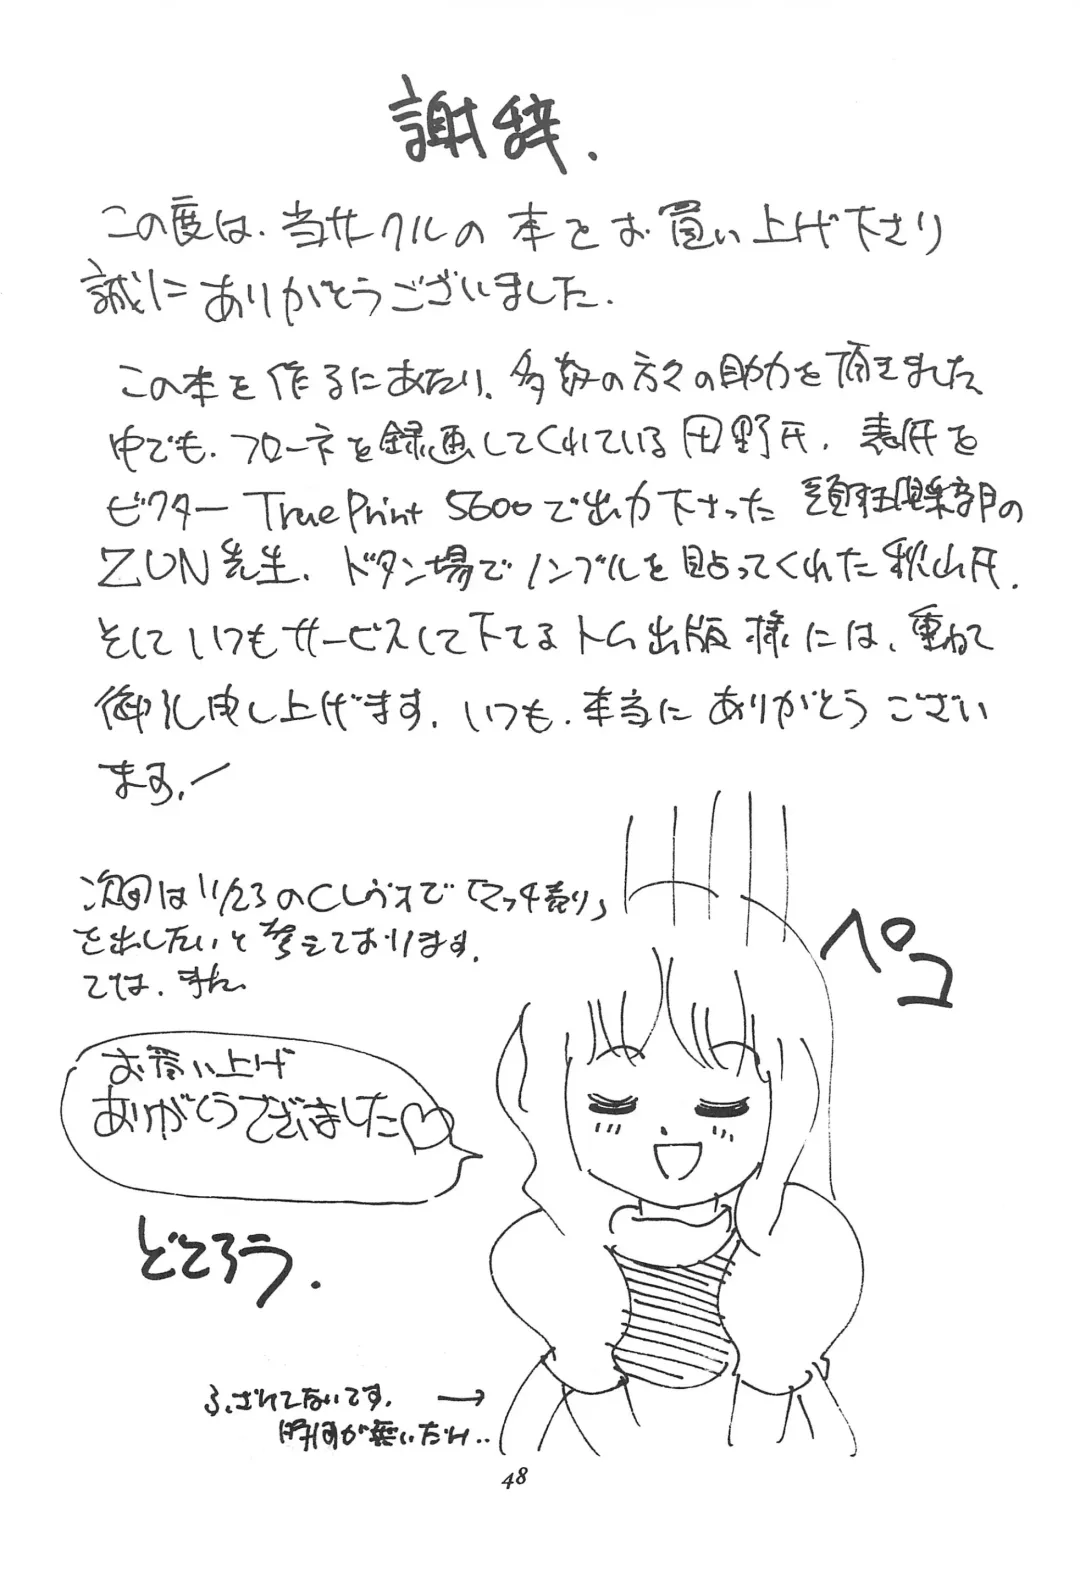 謝辞.
この度は、当サークルの本をお買い上げ下さり
誠にありがとうございました.
この本を作るにあたり、多数の方々の助力を頂きました
中でも、フローネを録画してくれている田野氏、表紙を
ビクター True Print 5600で出力下さった 頭狂倶楽部の
ZUN先生、ドタン場でノンブルを貼ってくれた秋山氏、
そしていつもサービスして下てるトム出版様には、重ねて
御礼申し上げます. いつも、本当にありがとうござい
ます.
次回は11/23のCレヴォで「マッチ売り」
を出したいと考えております.
では、また.
ペコ
お買い上げ
ありがとうございました♡
どどろう.
ふざけてないです. →
時間が無いだけ..
48